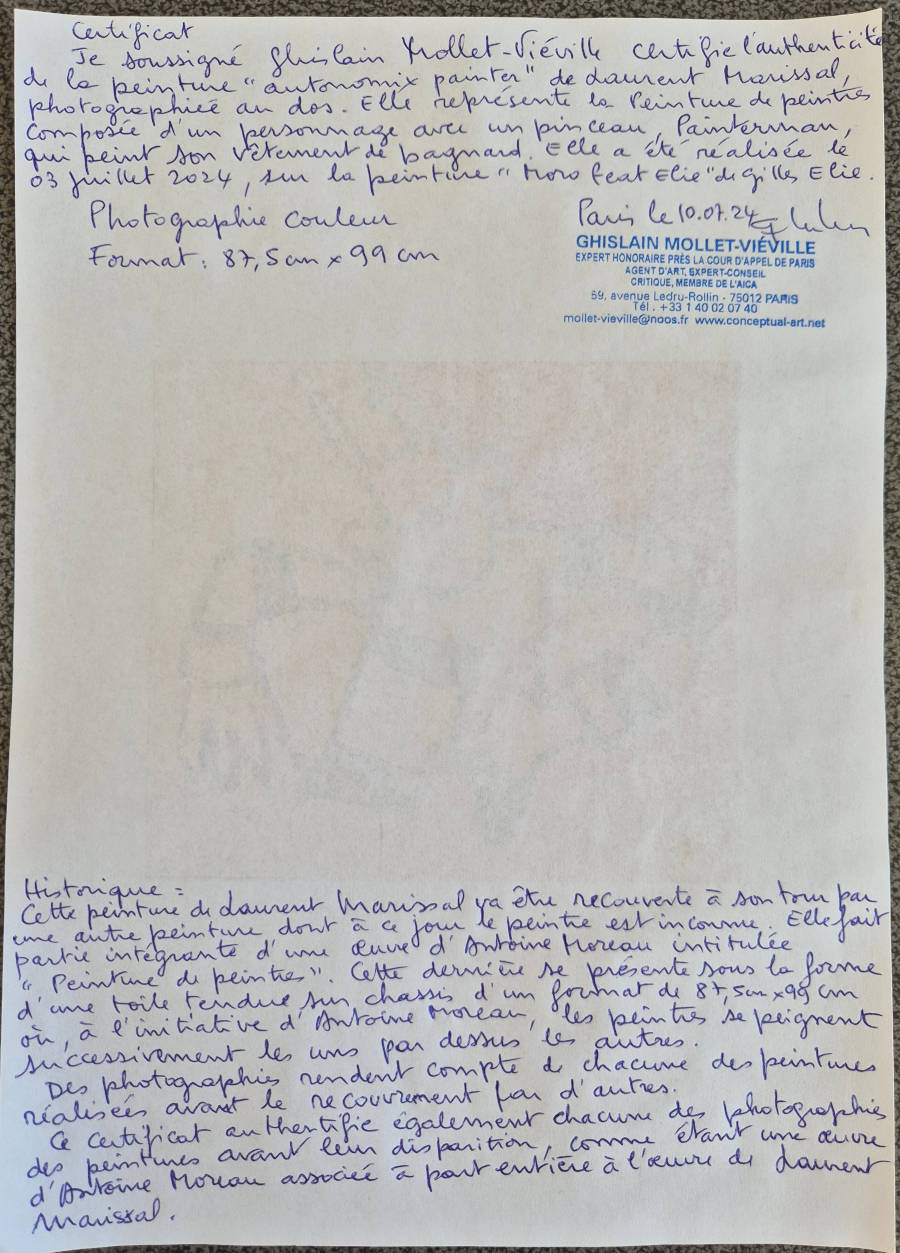 Certificat
Je soussigné Ghislain Mollet-Viéville certifie l'authenticité
de la peinture "autonomix painter" de Laurent Marissal,
photographiée au dos. Elle représente la Peinture de peintres
composée d'un personnage avec un pinceau, Painterman,
qui peint son vêtement de bagnard. Elle a été réalisée le
03 juillet 2024, sur la peinture "Moro feat Elie" de Gilles Elie.
Photographie couleur
Format : 87,5 cm x 99 cm
Paris le 10.07.24
GHISLAIN MOLLET-VIÉVILLE
EXPERT HONORAIRE PRÈS LA COUR D'APPEL DE PARIS
AGENT D'ART, EXPERT-CONSEIL
CRITIQUE, MEMBRE DE L'AICA
59, avenue Ledru-Rollin - 75012 PARIS
Tél. +33 1 40 02 07 40
mollet-vieville@noos.fr www.conceptual-art.net
Historique :
Cette peinture de Laurent Marissal va être recouverte à son tour par
une autre peinture dont à ce jour le peintre est inconnu. Elle fait
partie intégrante d'une œuvre d'Antoine Moreau intitulée
"Peinture de peintres". Cette dernière se présente sous la forme
d'une toile tendue sur chassis d'un format de 87,5cm x 99 cm
où, à l'initiative d'Antoine Moreau, les peintres se peignent
successivement les uns par dessus les autres.
Des photographies rendent compte de chacune des peintures
réalisées avant le recouvrement par d'autres.
Ce certificat authentifie également chacune des photographies
des peintures avant leur disparition, comme étant une œuvre
d'Antoine Moreau associée à part entière à l'œuvre de Laurent
Marissal.